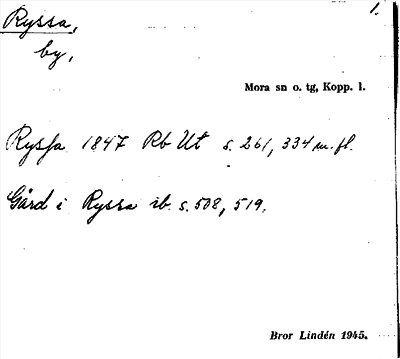 Ryssa, 1.
by,
Mora sn o. tg, Kopp. l.
Ryssa 1847 Rb Ut s. 261, 334 m. fl.
Gård i Ryssa ib. s. 508, 519.
Bror Lindén 1945.